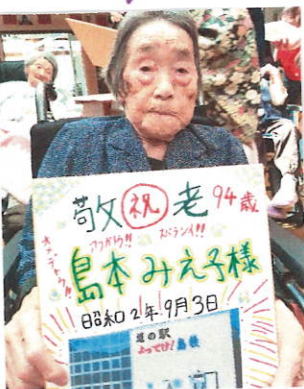 敬㊗老 94歳
オメデトウ!!
アリガトウ!! スバラシイ!!
島本 みえ子様
昭和2年9月3日
道の駅
よってけ!島根